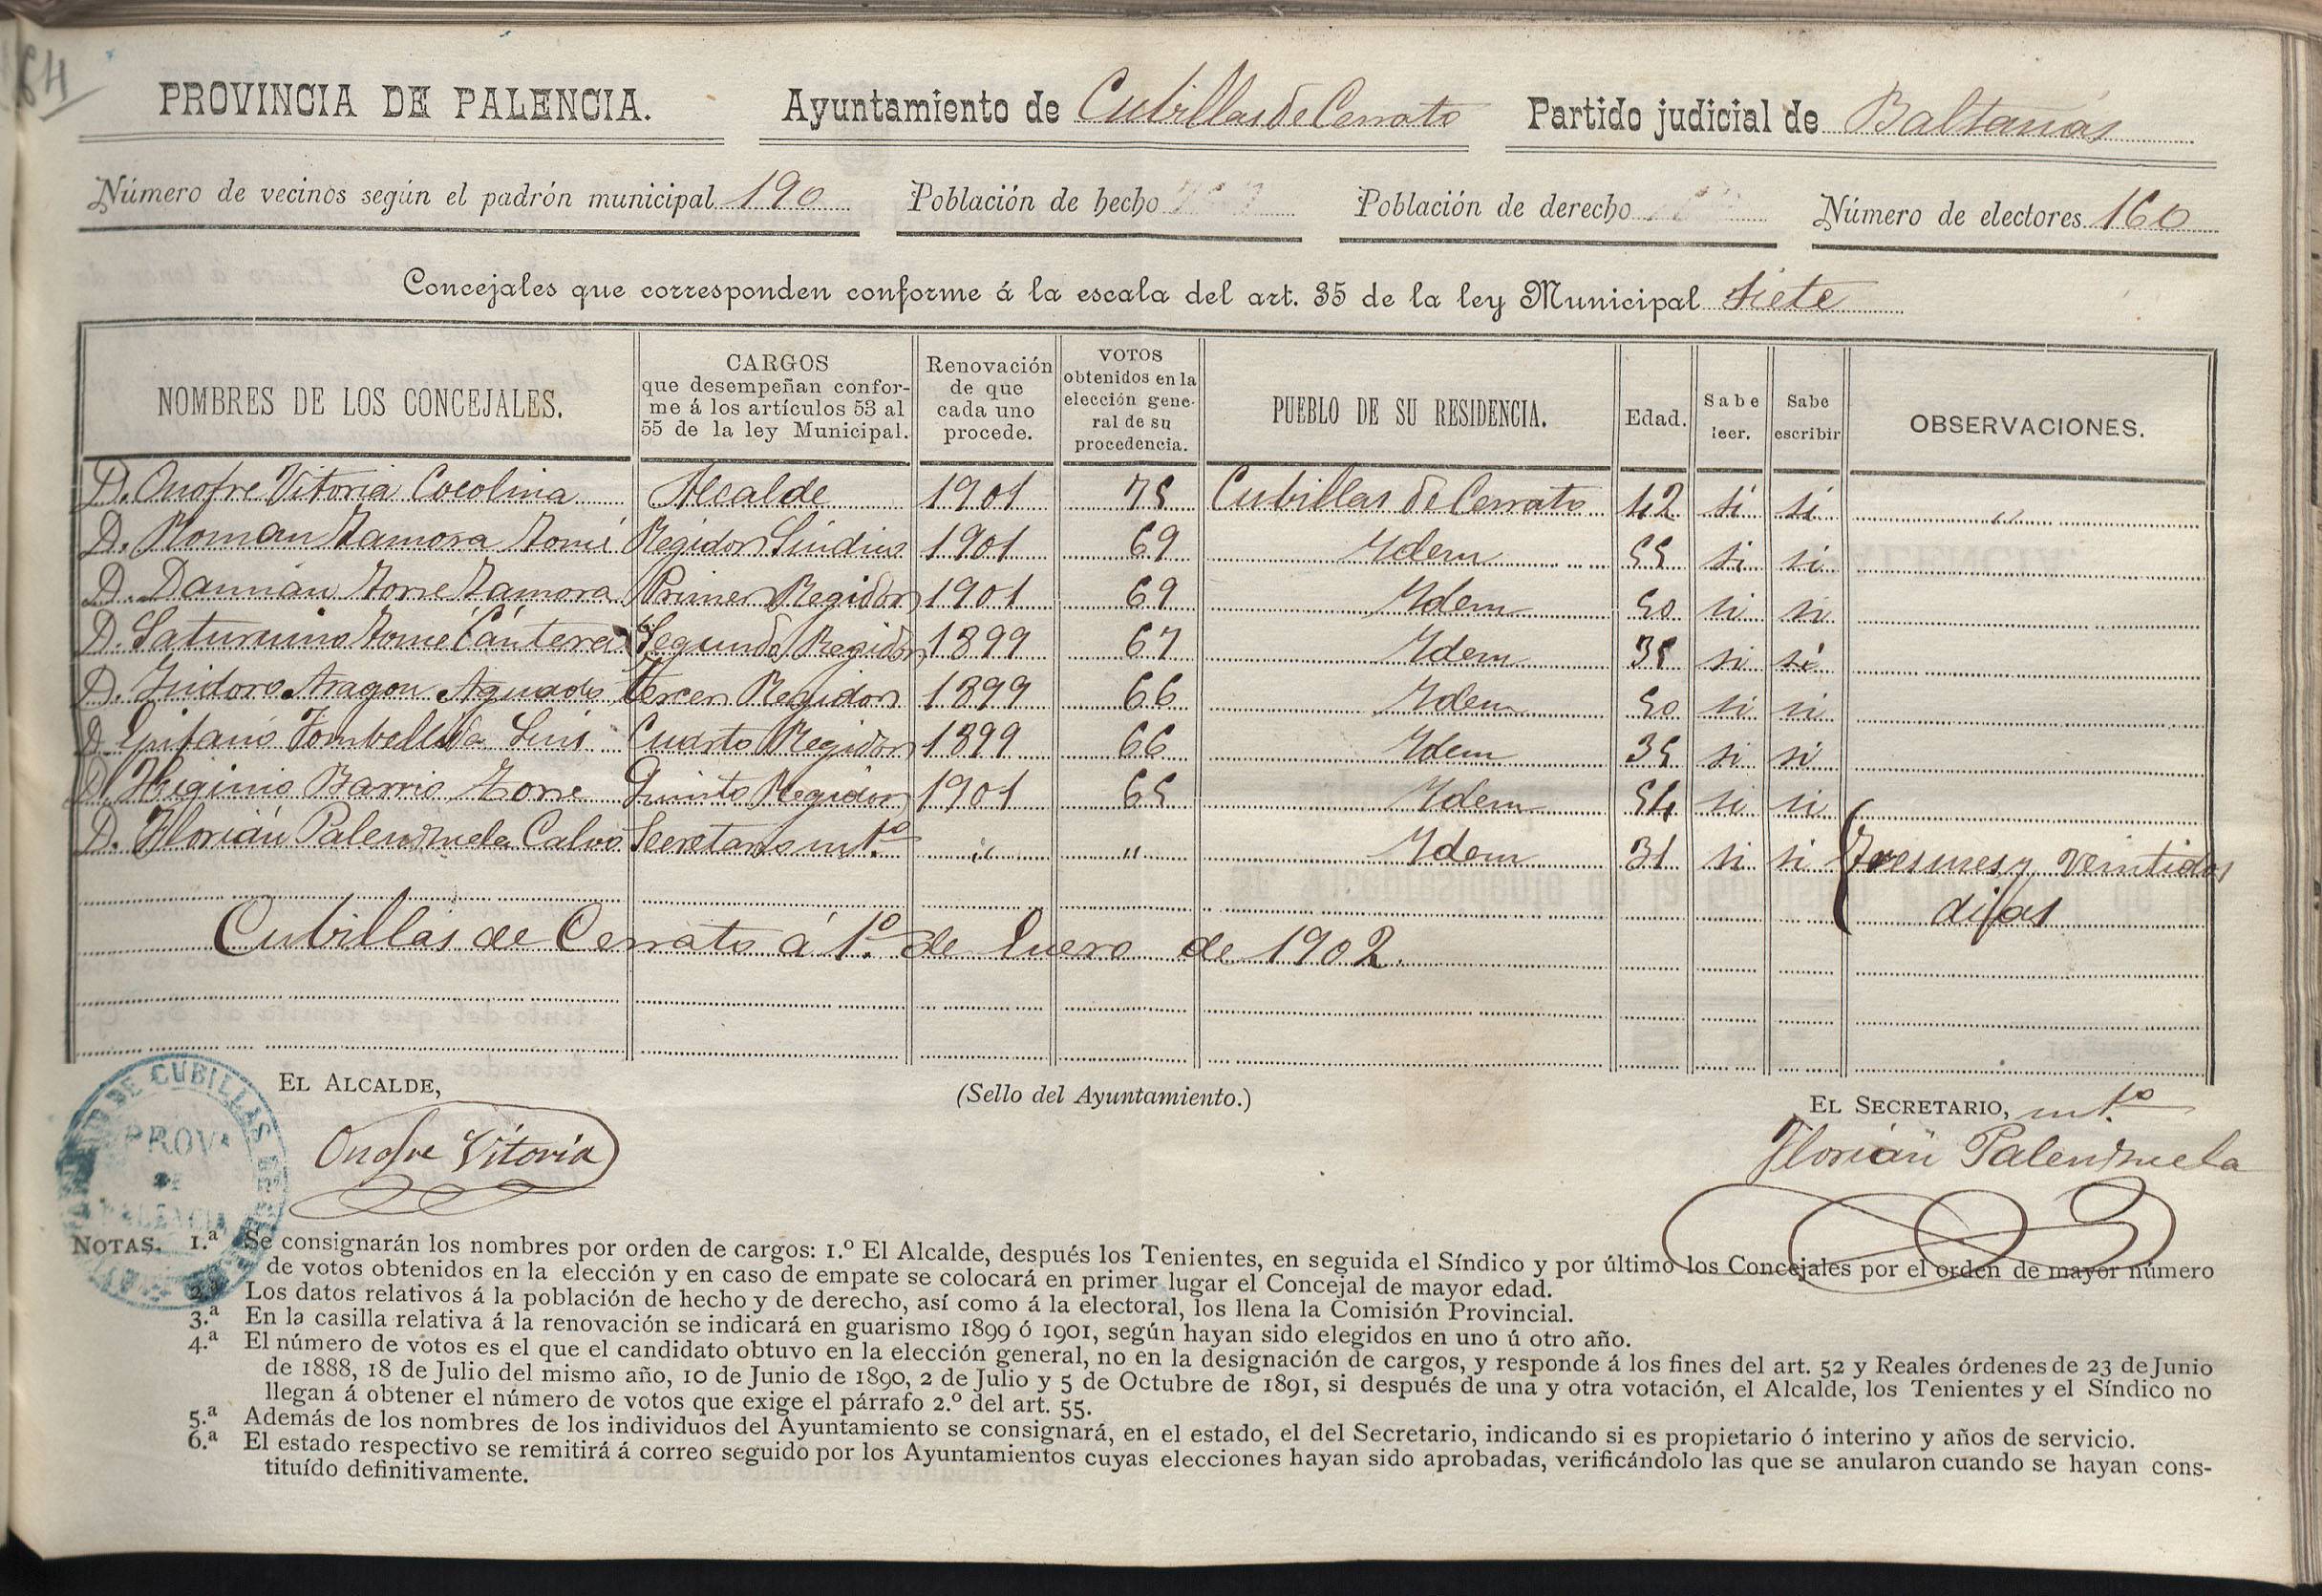 64
PROVINCIA DE PALENCIA. Ayuntamiento de Cubillas de Cerrato Partido judicial de Baltanás
Número de vecinos según el padrón municipal 190 Población de hecho Población de derecho Número de electores 160
Concejales que corresponden conforme á la escala del art. 35 de la ley Municipal siete
NOMBRES DE LOS CONCEJALES. CARGOS que desempeñan conforme á los artículos 53 al 55 de la ley Municipal. Renovación de que cada uno procede. VOTOS obtenidos en la elección general de su procedencia. PUEBLO DE SU RESIDENCIA. Edad. Sabe leer. Sabe escribir OBSERVACIONES.
D. Onofre Vitoria Cocolina Alcalde 1901 75 Cubillas de Cerrato 42 si si "
D. Roman Zamora Tomé Regidor Síndico 1901 69 Ydem 55 si si
D. Damián Torre Zamora Primer Regidor 1901 69 Ydem 50 si si
D. Saturnino Tomé Cántera Segundo Regidor 1899 67 Ydem 35 si si
D. Ysidoro Aragon Aguado tercer Regidor 1899 66 Ydem 50 si si
D. Epifanio Tombellida Cuarto Regidor 1899 66 Ydem 35 si si
D. Higinio Barrio Torre Quinto Regidor 1901 65 Ydem 54 si si
D. Florián Palenzuela Calvo Secretario intº " " Ydem 31 si si Tres mes y veintidos
dias
Cubillas de Cerrato á 1º de Enero de 1902.
EL ALCALDE, (Sello del Ayuntamiento.) EL SECRETARIO, intº
Onofre Vitoria
Florián Palenzuela
DE CUBILLAS DE
PROVª
DE
PALENCIA
NOTAS. 1.ª Se consignarán los nombres por orden de cargos: 1.º El Alcalde, después los Tenientes, en seguida el Síndico y por último los Concejales por el orden de mayor número
de votos obtenidos en la elección y en caso de empate se colocará en primer lugar el Concejal de mayor edad.
2.ª Los datos relativos á la población de hecho y de derecho, así como á la electoral, los llena la Comisión Provincial.
3.ª En la casilla relativa á la renovación se indicará en guarismo 1899 ó 1901, según hayan sido elegidos en uno ú otro año.
4.ª El número de votos es el que el candidato obtuvo en la elección general, no en la designación de cargos, y responde á los fines del art. 52 y Reales órdenes de 23 de Junio
de 1888, 18 de Julio del mismo año, 10 de Junio de 1890, 2 de Julio y 5 de Octubre de 1891, si después de una y otra votación, el Alcalde, los Tenientes y el Síndico no
llegan á obtener el número de votos que exige el párrafo 2.º del art. 55.
5.ª Además de los nombres de los individuos del Ayuntamiento se consignará, en el estado, el del Secretario, indicando si es propietario ó interino y años de servicio.
6.ª El estado respectivo se remitirá á correo seguido por los Ayuntamientos cuyas elecciones hayan sido aprobadas, verificándolo las que se anularon cuando se hayan cons-
tituído definitivamente.